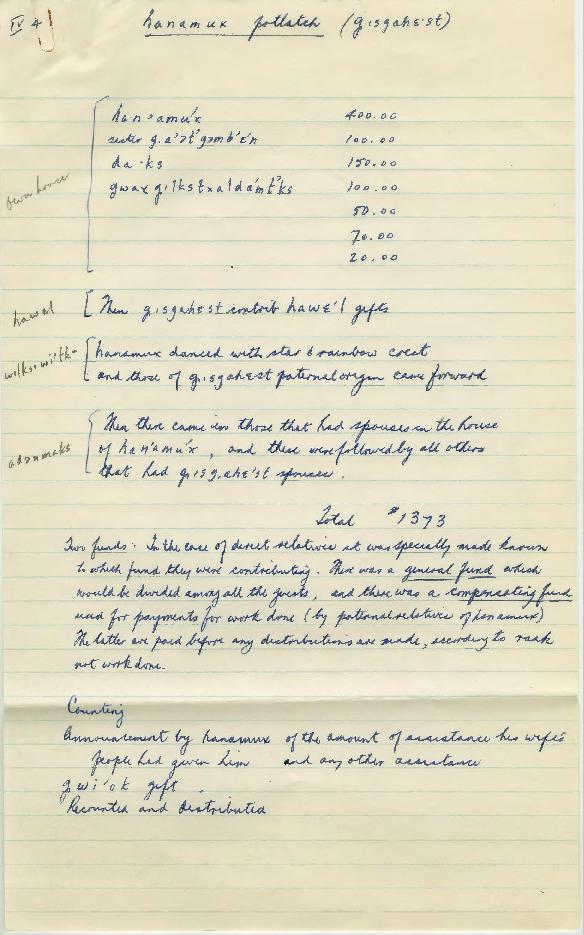 IV 4
hanamux potlatch (gisgahɛst)
own house
hanʼamúˑx 400.00
sister 100.00
daˑks 150.00
100.00
50.00
70.00
20.00
hawal
Then gisgahɛst contrib hawɛˊl gifts
hanamux danced with star & rainbow crest
and those of gisgahɛst paternal origin came forward
Then there came in those that had spouses in the house
of hanʼamúˑx, and these were followed by all others
that had gisgahɛˊst spouses.
Total $1373
Two funds: In the case of direct relatives it was specially made known
to which fund they were contributing. There was a general fund which
would be divided among all the guests, and there was a compensating fund
used for payments for work done (by paternal relatives of hanamux)
The latter are paid before any distributions are made, according to rank
not work done.
Counting
Announcement by hanamux of the amount of assistance his wife's
people had given him and any other assistance
gwiˑʼok gift.
Recounted and distributed